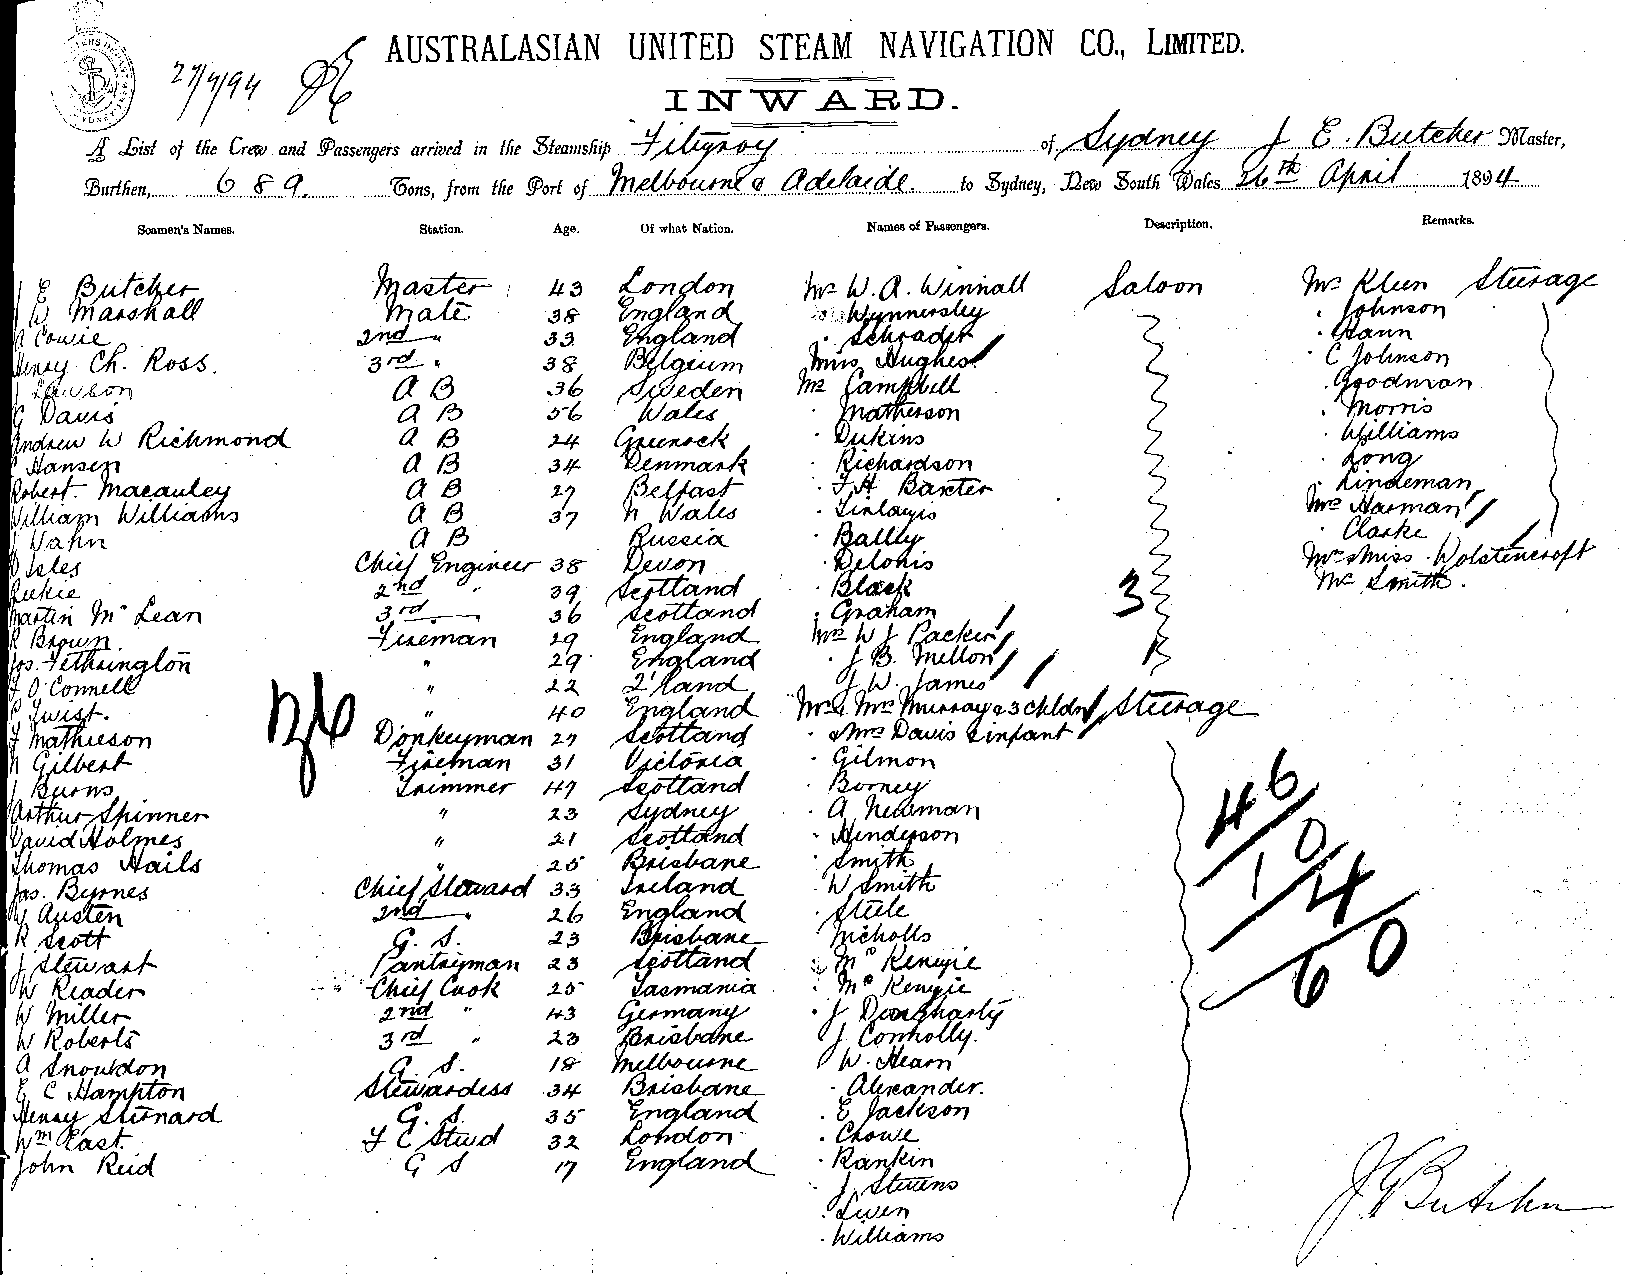 27/4/94
AUSTRALASIAN UNITED STEAM NAVIGATION CO., LIMITED.
INWARD.
A List of the Crew and Passengers arrived in the Steamship Fitzroy of Sydney J E. Butcher Master,
Burthen, 689. Tons, from the Port of Melbourne & Adelaide. to Sydney, New South Wales 26th April 1894
Seamen's Names. Station. Age. Of what Nation. Names of Passengers. Description. Remarks.
J E Butcher Master 43 London Mr W. A. Winnall Saloon Mr Klein Steerage
W Marshall Mate 38 England " Wynnersley · Johnson
Cowie 2nd " 33 England · Schrader · Gann
Henry Ch. Ross. 3rd " 38 Belgium Miss Hughes · C Johnson
J Lawson A B 36 Sweden Mr Campbell · Goodman
G Davis A B 56 Wales · Matherson · Morris
Andrew W Richmond A B 24 Greenock · Dukins · Williams
Hansen A B 34 Denmark · Richardson · Long
Robert Macauley A B 27 Belfast · F H Baxter · Lindeman
William Williams A B 37 N Wales · Finlayis Mrs Harman
J Vahn A B Russia · Bally · Clarke
Isles Chief Engineer 38 Devon · Delohis Mrs & Miss Wolstencroft
Reekie 2nd " 39 Scotland · Black Mr Smith.
Martin McLean 3rd 36 Scotland · Graham 3
R Brown Fireman 29 England Mrs W J Packer
Jos. Fethrington " 29 England · J B. Mellon
J O'Connell " 22 I'land J. W. James
Twist. " 40 England Mr & Mrs Murray & 3 chldn Steerage
J Mathieson Donkeyman 27 Scotland · & Mrs Davis & infant
N Gilbert Fireman 31 Victoria · Gilmon
J Burns Trimmer 47 Scotland · Borney
Arthur Spinner " 23 Sydney · A Newman
David Holmes " 21 Scotland · Henderson
Thomas Hails " 25 Brisbane · Smith
Jas. Byrnes Chief Steward 33 Ireland · W Smith
W Austen 2nd " 26 England · Steele
R Scott G. S. 23 Brisbane Nicholls
J Stewart Pantryman 23 Scotland " McKenzie
W Reader Chief Cook 25 Tasmania " McKenzie
W Miller 2nd " 43 Germany · J Dougharty
W Roberts 3rd " 23 Brisbane J Connolly.
A Snowdon G. S. 18 Melbourne W. Hearn
E C Hampton Stewardess 34 Brisbane · Alexander.
Henry Sternard G. S. 35 England · E Jackson
Wm East F C Stwd 32 London · Crowe
John Reid G S 17 England · Rankin
· J, Stevens
· Swen
· Williams
46
10
4
60
J E Butcher